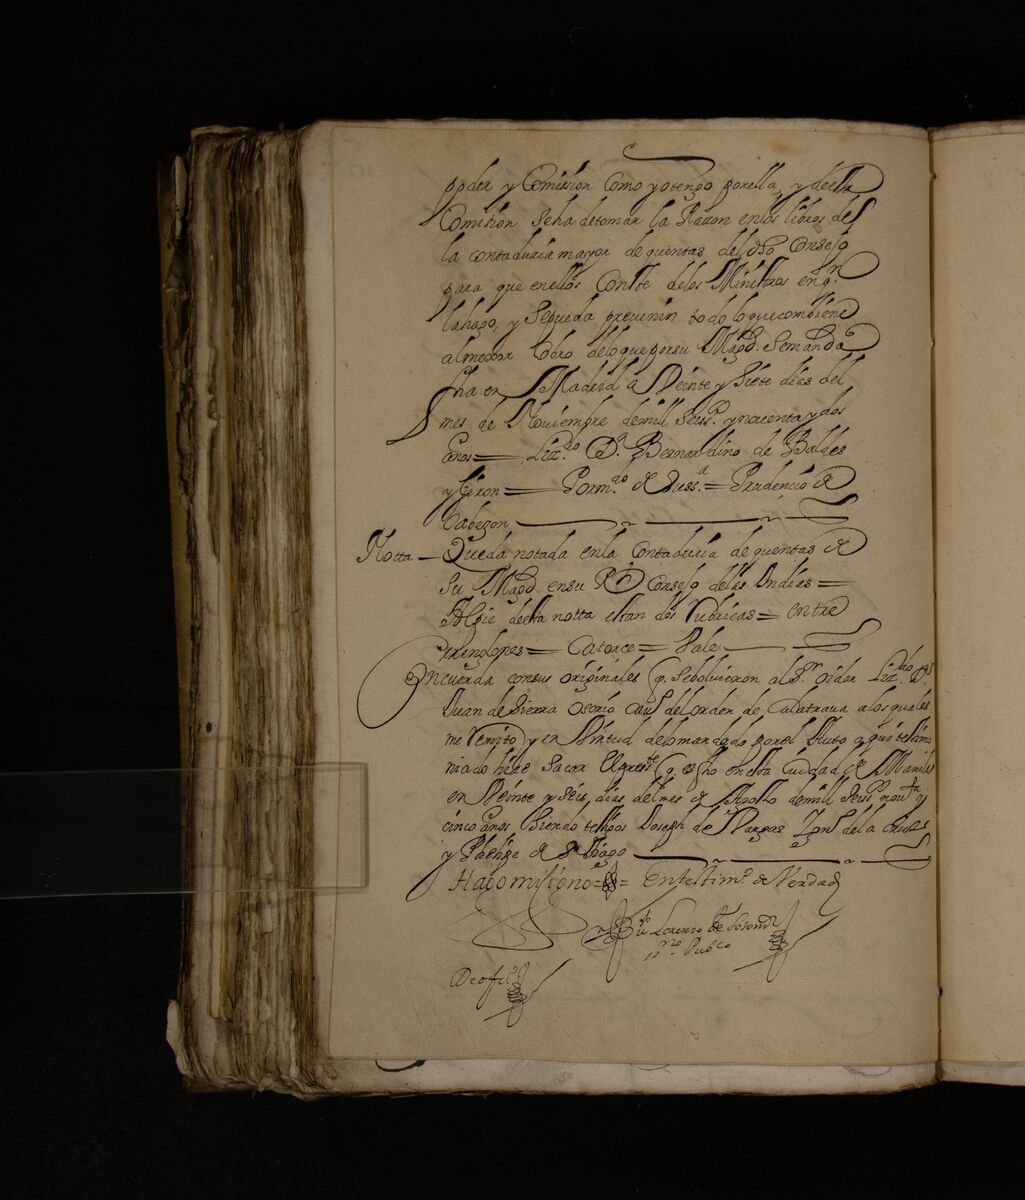 poder y Comission como yo tengo por ella, y de esta
Comision se ha de tomar la Razon en los libros de
la contaduria mayor de quentas del dho Consejo
para que en ellos Conste de los Ministros en qn
la hago, y se pueda prevenir todo lo que combiene
al mexor Cobro de lo que por su Magd. se manda
fha en Madrid a Veinte y Siete dias del
mes de Noviembre de mill Seiss.s y noventa y dos
años = Lizdo Dn Bernardino de Baldes
y Giron = Por mdo de su ss.a = Prudencio de
Cabezon
Notta - Queda notada en la Contaduria de quentas de
Su Magd. en su Rl Consejo de las Indias =
Al pie de esta notta estan dos Rubricas = entre
rrenglones = Catorce = Vale
Concuerda con sus originales q. se bolvieron al Sr oidor Lizdo Dn
Juan de Sierra Osorio Cavo del orden de Calatrava a los quales
me remito y en Virtud de lo mandado por el Auto aqui testimo
niado hize sacar el presste q. es fho en esta Ciudad de Manila
en Veinte y Seis dias del mes de Agosto de mill Seiss.s novta y
cinco años siendo testigos Joseph de Vargas, de la Cruz
y Phelipe de Stiago
Hago mi signo = = en testimo. de Verdad
Lorenzo
no Pubco
De ofi.o